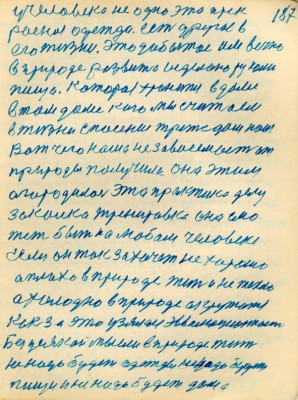 187
у человека не одно это прек
расная одежда. Есть другое в
его жизни. Это забытое им вечно
в природе развить неделано руками
пища. Которая хранится в доме
в том доме кого мы считаем
в жизни спасении третье дом нам
Вот чего наша независимость от
природы получила она этим
огородилася эта практика делу
закалка тренировка она смо
жет быть на любом человеке
Если он так захочет не хорошо
а плохо в природе жить не тепло
а холодно в природе окружать
Как за это узялася Эволюционность
Без всякой мысли в природе жить
не надо будет одежда не надо будет
пищи и не надо будет дома